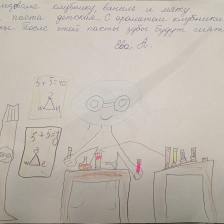 клубнику, ваниль и мяту
паста детская. С ароматом клубники
После этой пасты зубы будут сиять
Ева А.
5+5=10
5+5=